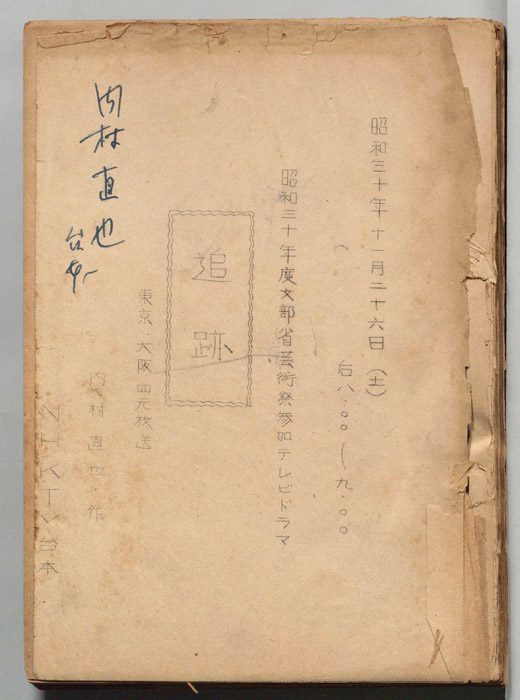 昭和三十年十一月二十六日（土）
后八.〇〇—九.〇〇
昭和三十年度文部省芸術祭参加テレビドラマ
追跡
東京・大阪四元放送
内村直也・作
内村直也
台本
NHKTV台本